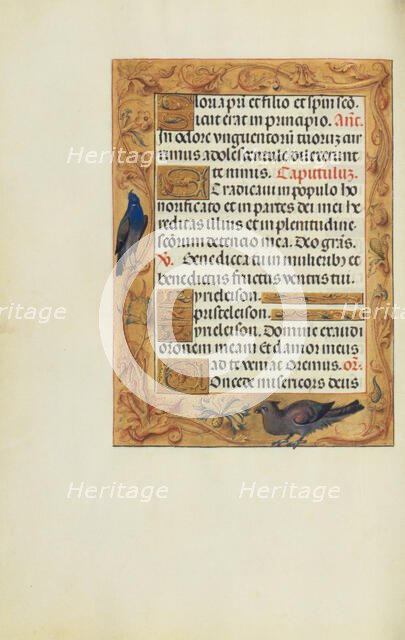 Gloria pri et filio et spiri scō.
icut erat in principio. Añt.
In odore unguentoru tuoruz cur
rimus adolescentule dilexerunt
te nimis. Capituluz.
Et radicavi in populo ho
norificato et in partes dei mei he
reditas illius et in plenitudine
scōrum detencio mea. Deo grās.
V. Benedicta tu in mulierib9 et
benedictus fructus ventris tui.
Kyrieleison.
Xpisteleison.
Kyrieleison. Domine exaudi
orōnem meam et clamor meus
ad te veniat Oremus. or̄o.
Concede misericors deus
Heritage Heritage Heritage
Heritage Heritage Heritage
Heritage Heritage Heritage